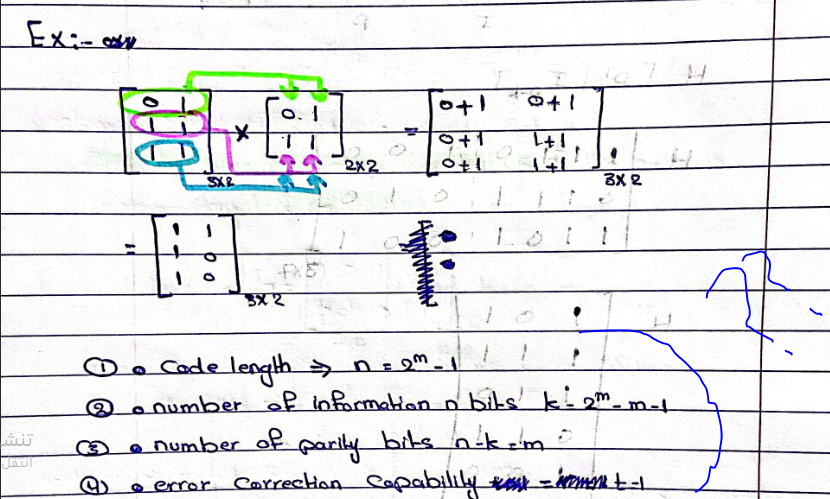 Ex:-
[ 0 1 ] × [ 0 1 ] = [ 0+1 0+1 ]
[ 1 1 ] [ 1 1 ] [ 0+1 1+1 ]
[ 1 1 ] 3×2 2×2 [ 0+1 1+1 ] 3×2
= [ 1 1 ]
[ 1 0 ]
[ 1 0 ] 3×2
① • Code length ⇒ n = 2^m - 1
② • number of information n bits k = 2^m - m - 1
③ • number of parity bits n-k = m
④ • error Correction Capability = t-1